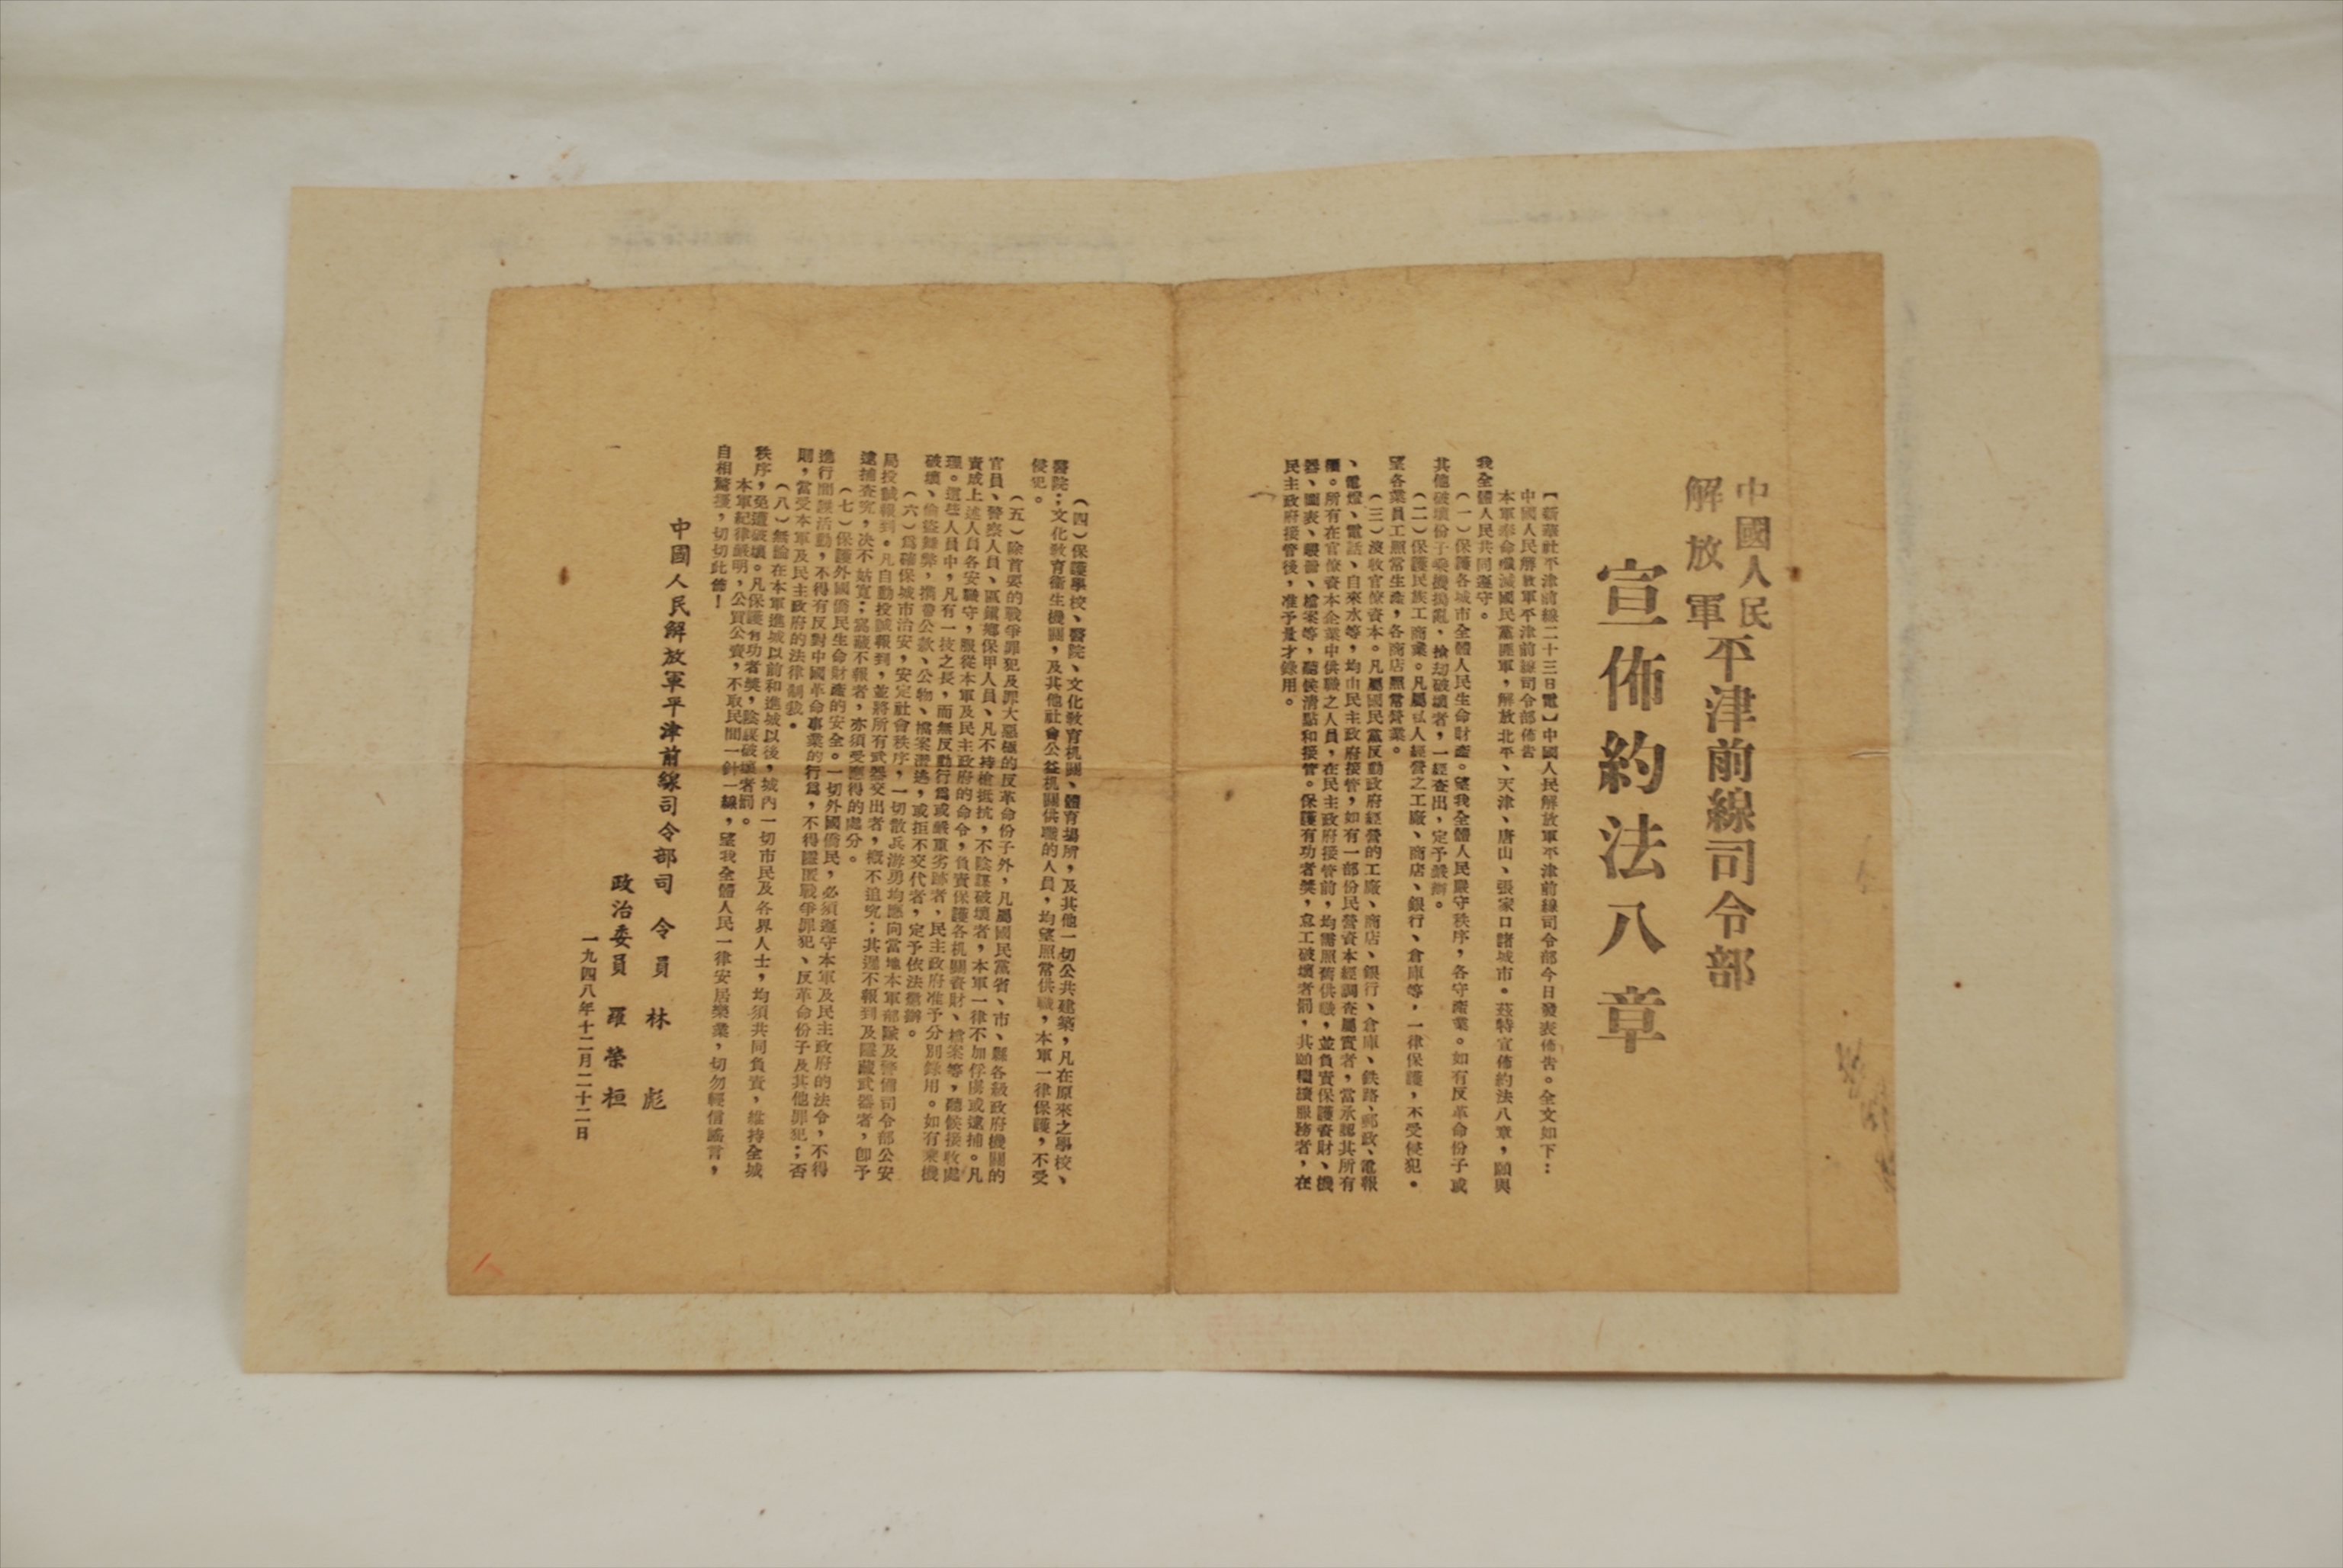 中國人民
解放軍
平津前線司令部
宣佈約法八章
【新華社平津前線二十三日電】中國人民解放軍平津前線司令部今日發表佈告。全文如下：
中國人民解放軍平津前線司令部佈告
本軍奉命殲滅國民黨匪軍，解放北平、天津、唐山、張家口諸城市。茲特宣佈約法八章，願與
我全體人民共同遵守。
（一）保護各城市全體人民生命財產。望我全體人民嚴守秩序，各守產業。如有反革命份子或
其他破壞份子乘機搗亂、搶刧破壞者，一經查出，定予嚴辦。
（二）保護民族工商業。凡屬私人經營之工廠、商店、銀行、倉庫等，一律保護，不受侵犯。
望各業員工照常生產，各商店照常營業。
（三）沒收官僚資本。凡屬國民黨反動政府經營的工廠、商店、銀行、倉庫、鉄路、郵政、電報
、電燈、電話、自來水等，均由民主政府接管，如有一部份民營資本經調查屬實者，當承認其所有
權。所有在官僚資本企業中供職之人員，在民主政府接管前，均需照舊供職，並負責保護資財、機
器、圖表、賬冊、檔案等，聽候清點和接管。保護有功者獎，怠工破壞者罰，其願繼續服務者，在
民主政府接管後，准予量才錄用。
（四）保護學校、醫院、文化敎育机關、體育場所，及其他一切公共建築，凡在原來之學校、
醫院；文化敎育衛生機關，及其他社會公益机關供職的人員，均望照常供職，本軍一律保護，不受
侵犯。
（五）除首要的戰爭罪犯及罪大惡極的反革命份子外，凡屬國民黨省、市、縣各級政府機關的
官員、警察人員、區鎭鄉保甲人員、凡不持槍抵抗，不陰謀破壞者，本軍一律不加俘虜或逮捕。凡
責成上述人員各安職守，服從本軍及民主政府的命令，負責保護各机關資財、檔案等，聽候接收處
理。這些人員中，凡有一技之長，而無反動行爲或嚴重劣跡者，民主政府准予分別錄用。如有乘機
破壞、偷盜舞弊，攜帶公款、公物、檔案潛逃，或拒不交代者，定予依法懲辦。
（六）爲確保城市治安，安定社會秩序，一切散兵游勇均應向當地本軍部隊及警備司令部公安
局投誠報到。凡自動投誠報到，並將所有武器交出者，槪不追究；其遲不報到及隱藏武器者，卽予
逮捕查究，決不姑寬；窩藏不報者，亦須受應得的處分。
（七）保護外國僑民生命財產的安全。一切外國僑民，必須遵守本軍及民主政府的法令，不得
進行間諜活動，不得有反對中國革命事業的行爲，不得隱匿戰爭罪犯、反革命份子及其他罪犯；否
則，當受本軍及民主政府的法律制裁。
（八）無論在本軍進城以前和進城以後，城內一切市民及各界人士，均須共同負責，維持全城
秩序，免遭破壞。凡保護有功者獎，陰謀破壞者罰。
本軍紀律嚴明，公買公賣，不取民間一針一線，望我全體人民一律安居樂業，切勿輕信謠言，
自相驚擾，切切此佈！
中國人民解放軍平津前線司令部司令員 林彪
政治委員 羅榮桓
一九四八年十二月二十二日